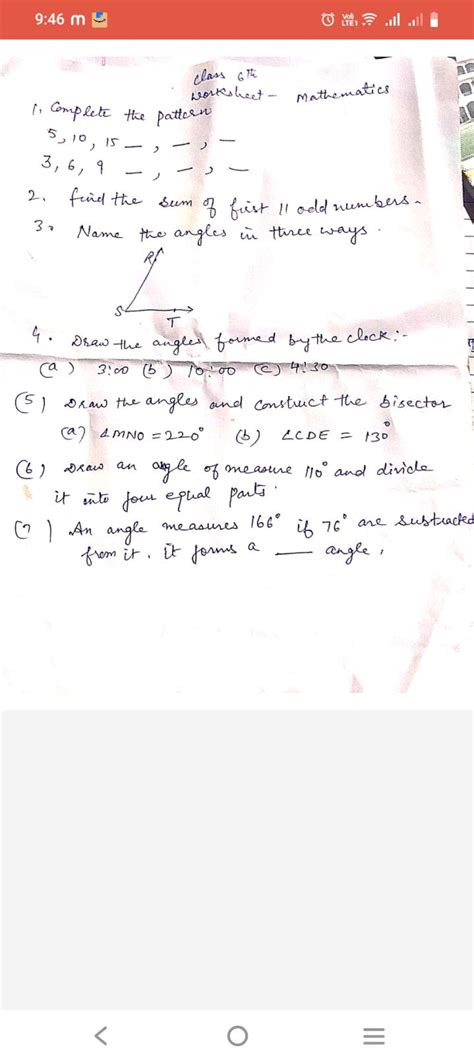 9:46 m
Vo) LTE1
class 6th
worksheet - Mathematics
1. Complete the pattern
5, 10, 15 —, —, —
3, 6, 9 —, —, —
2. find the sum of first 11 odd numbers.
3. Name the angles in three ways.
R
S
T
4. Draw the angles formed by the clock:-
(a) 3:00 (b) 10:00 (c) 4:30
(5) Draw the angles and construct the bisector
(a) ∠MNO = 220° (b) ∠CDE = 130°
(6) Draw an angle of measure 110° and divide
it into four equal parts.
(7) An angle measures 166° if 76° are substracted
from it. it forms a ___ angle,